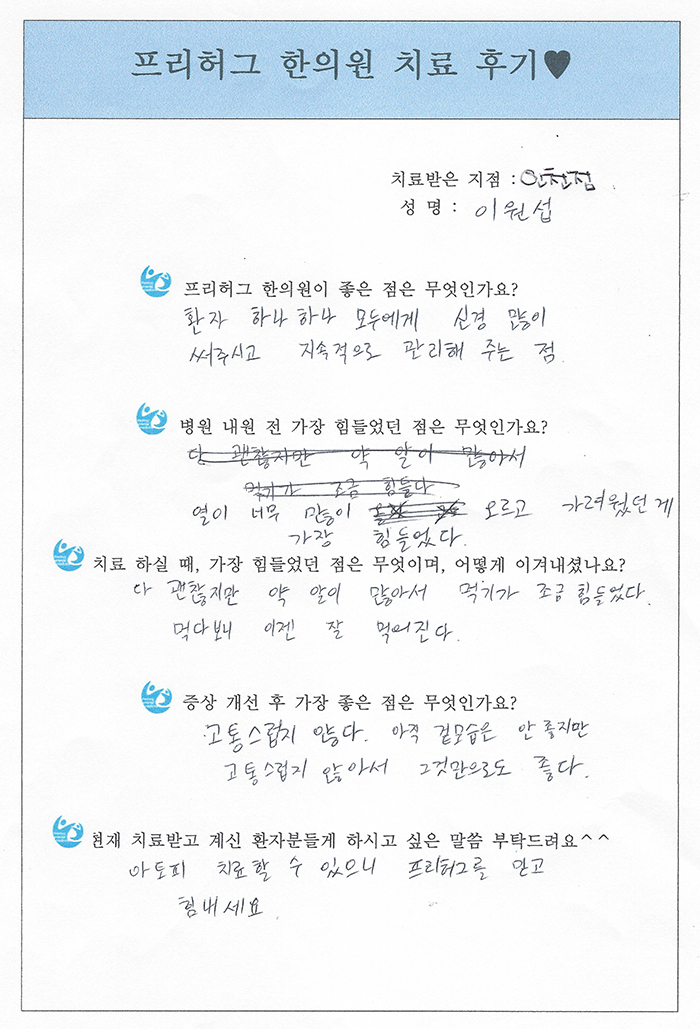 프리허그 한의원 치료 후기♥
치료받은 지점 : 인천점
성 명 : 이원섭
프리허그 한의원이 좋은 점은 무엇인가요?
환자 하나하나 모두에게 신경 많이
써주시고 지속적으로 관리해 주는 점.
병원 내원 전 가장 힘들었던 점은 무엇인가요?
다 괜찮지만 약 알이 많아서
먹기가 조금 힘들다
열이 너무 많이 오르고 가려웠던 게
가장 힘들었다.
치료 하실 때, 가장 힘들었던 점은 무엇이며, 어떻게 이겨내셨나요?
다 괜찮지만 약 알이 많아서 먹기가 조금 힘들었다.
먹다보니 이젠 잘 먹어진다.
증상 개선 후 가장 좋은 점은 무엇인가요?
고통스럽지 않다. 아직 겉모습은 안 좋지만
고통스럽지 않아서 그것만으로도 좋다.
현재 치료받고 계신 환자분들게 하시고 싶은 말씀 부탁드려요^^
아토피 치료할 수 있으니 프리허그를 믿고
힘내세요.